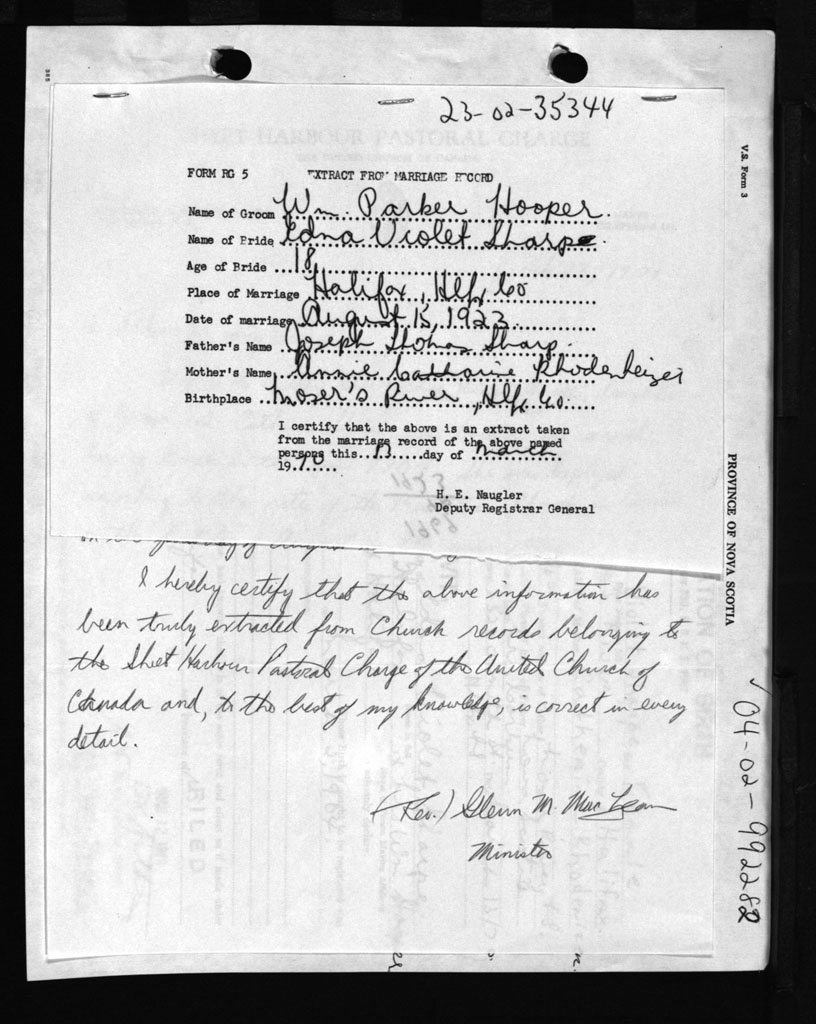 23-02-35344
FORM RG 5 EXTRACT FROM MARRIAGE RECORD
Name of Groom Wm. Parker Hooper.
Name of Bride Edna Violet Sharpe.
Age of Bride 18
Place of Marriage Halifax, Hlfx Co
Date of marriage August 15, 1923.
Father's Name Joseph Thomas Sharp.
Mother's Name Annie Catharine Rhodenheizer
Birthplace Moser's River, Hlfx Co.
I certify that the above is an extract taken
from the marriage record of the above named
persons this 13 day of March
1970
H. E. Naugler
Deputy Registrar General
I hereby certify that the above information has
been truly extracted from Church records belonging to
the Sheet Harbour Pastoral Charge of the United Church of
Canada and, to the best of my knowledge, is correct in every
detail.
(Rev.) Glenn M. MacLean
Minister
V.S. Form 3
PROVINCE OF NOVA SCOTIA
04-02-992282